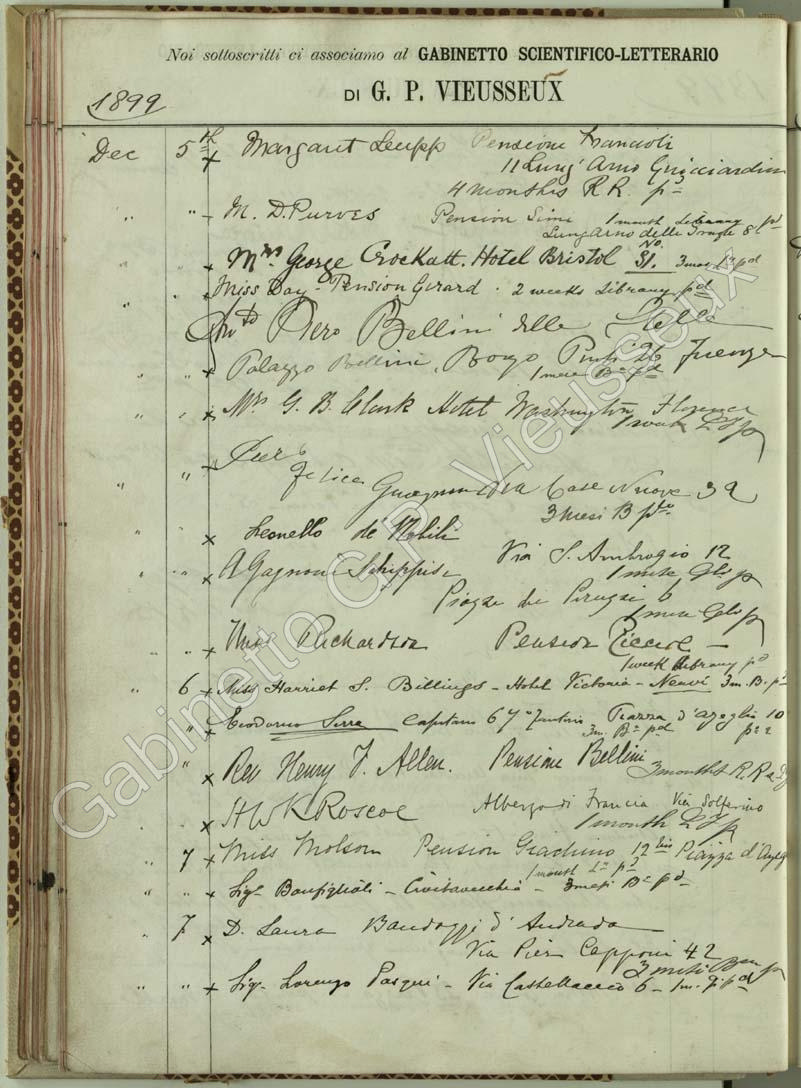 Noi sottoscritti ci associamo al GABINETTO SCIENTIFICO-LETTERARIO
DI G. P. VIEUSSEUX
1899
Dec 5th Margaret Leupp Pensione Francioli
11 Lung' Arno Guicciardini
4 months R R. pd
" " M. D. Purves Pension Simi 1 month Library pd
Lung Arno delle Grazie 8
Mrs George Crockatt. Hotel Bristol No. 31. 3 mos. pd
" " Miss Day - Pension Girard . 2 weeks Library pd
Piero Bellini delle Stelle
" " Palazzo Bellini, Borgo Pinti 26 Firenze
1 mese Ba pd
" " Mrs G. B. Clark Hotel Washington Florence
1 week
" " Felice Via Case Nuove
3 mesi B pto
Leonello de Nobili
Via S. Ambrogio 12
" " A Gagnoni Schippisi 1 mese
Piazza 6
1 mese
" " Miss Richardson Pension
1 week Library pd
6 Miss Harriet S. Billings - Hotel Victoria - 3 m. B. pd
" Serra Capitano 67o Piazza d'Azeglio 10
3 m. Ba pd
" Rev Henry J. Allen. Pensione Bellini
3 months R. R
" H W K Roscoe Albergo di Francia Via Solferino
1 month
7 Miss Molson Pension Giachino 12 Piazza d'Azeglio
1 month pd
" " Sigr Bonfiglioli - Civitavecchia - 3 mesi Ba pd
7 D. Laura Bandozzi d'Andrada
Via Pier Capponi 42
3 mesi
" " Sigr Lorenzo Pasqui - Via Castellaccio 6 - 1 m. pd
Gabinetto G.P. Vieusseux